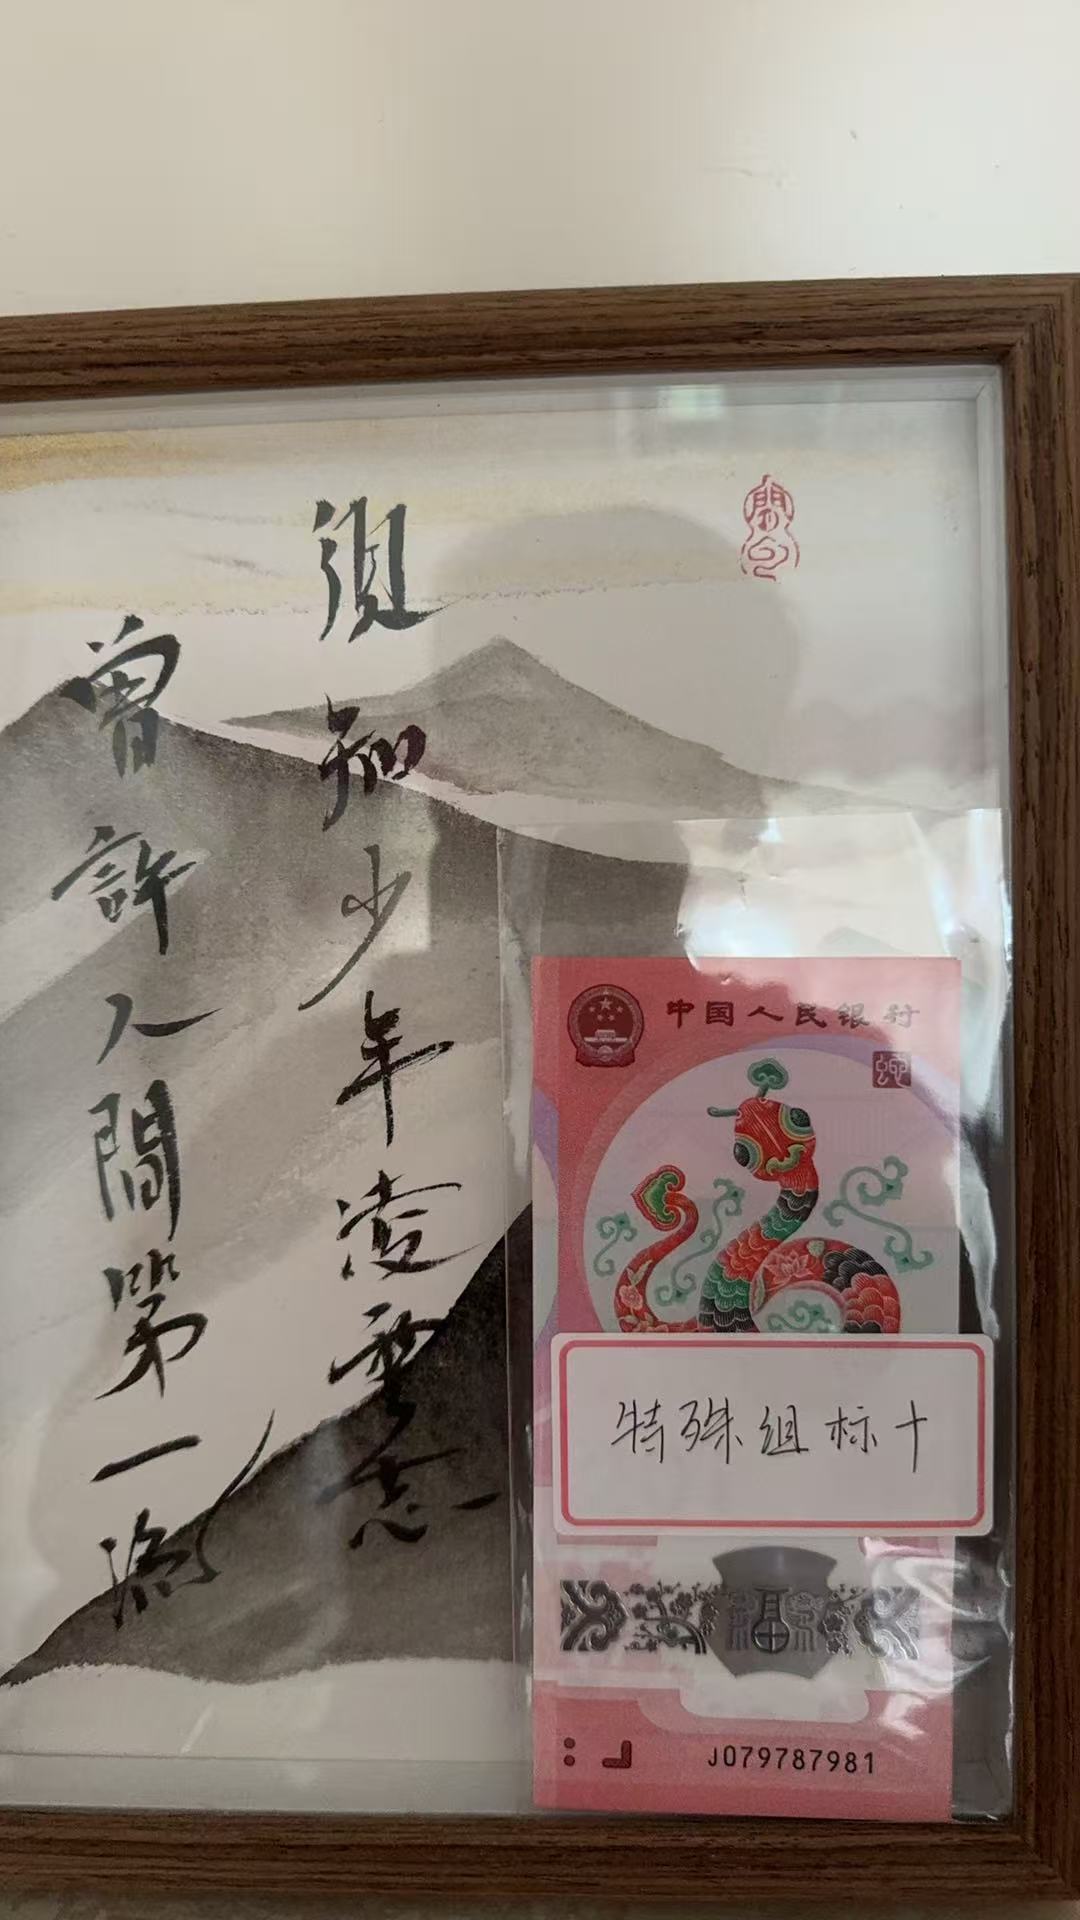 須知少年凌雲志
曾許人間第一流
中国人民银行
特殊组标十
福
J079787981